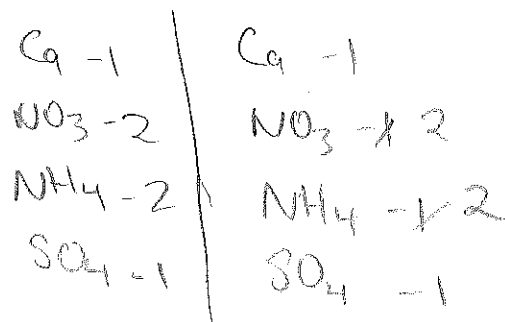 Ca - 1
NO3 - 2
NH4 - 2
SO4 - 1
Ca - 1
NO3 - 2
NH4 - 2
SO4 - 1